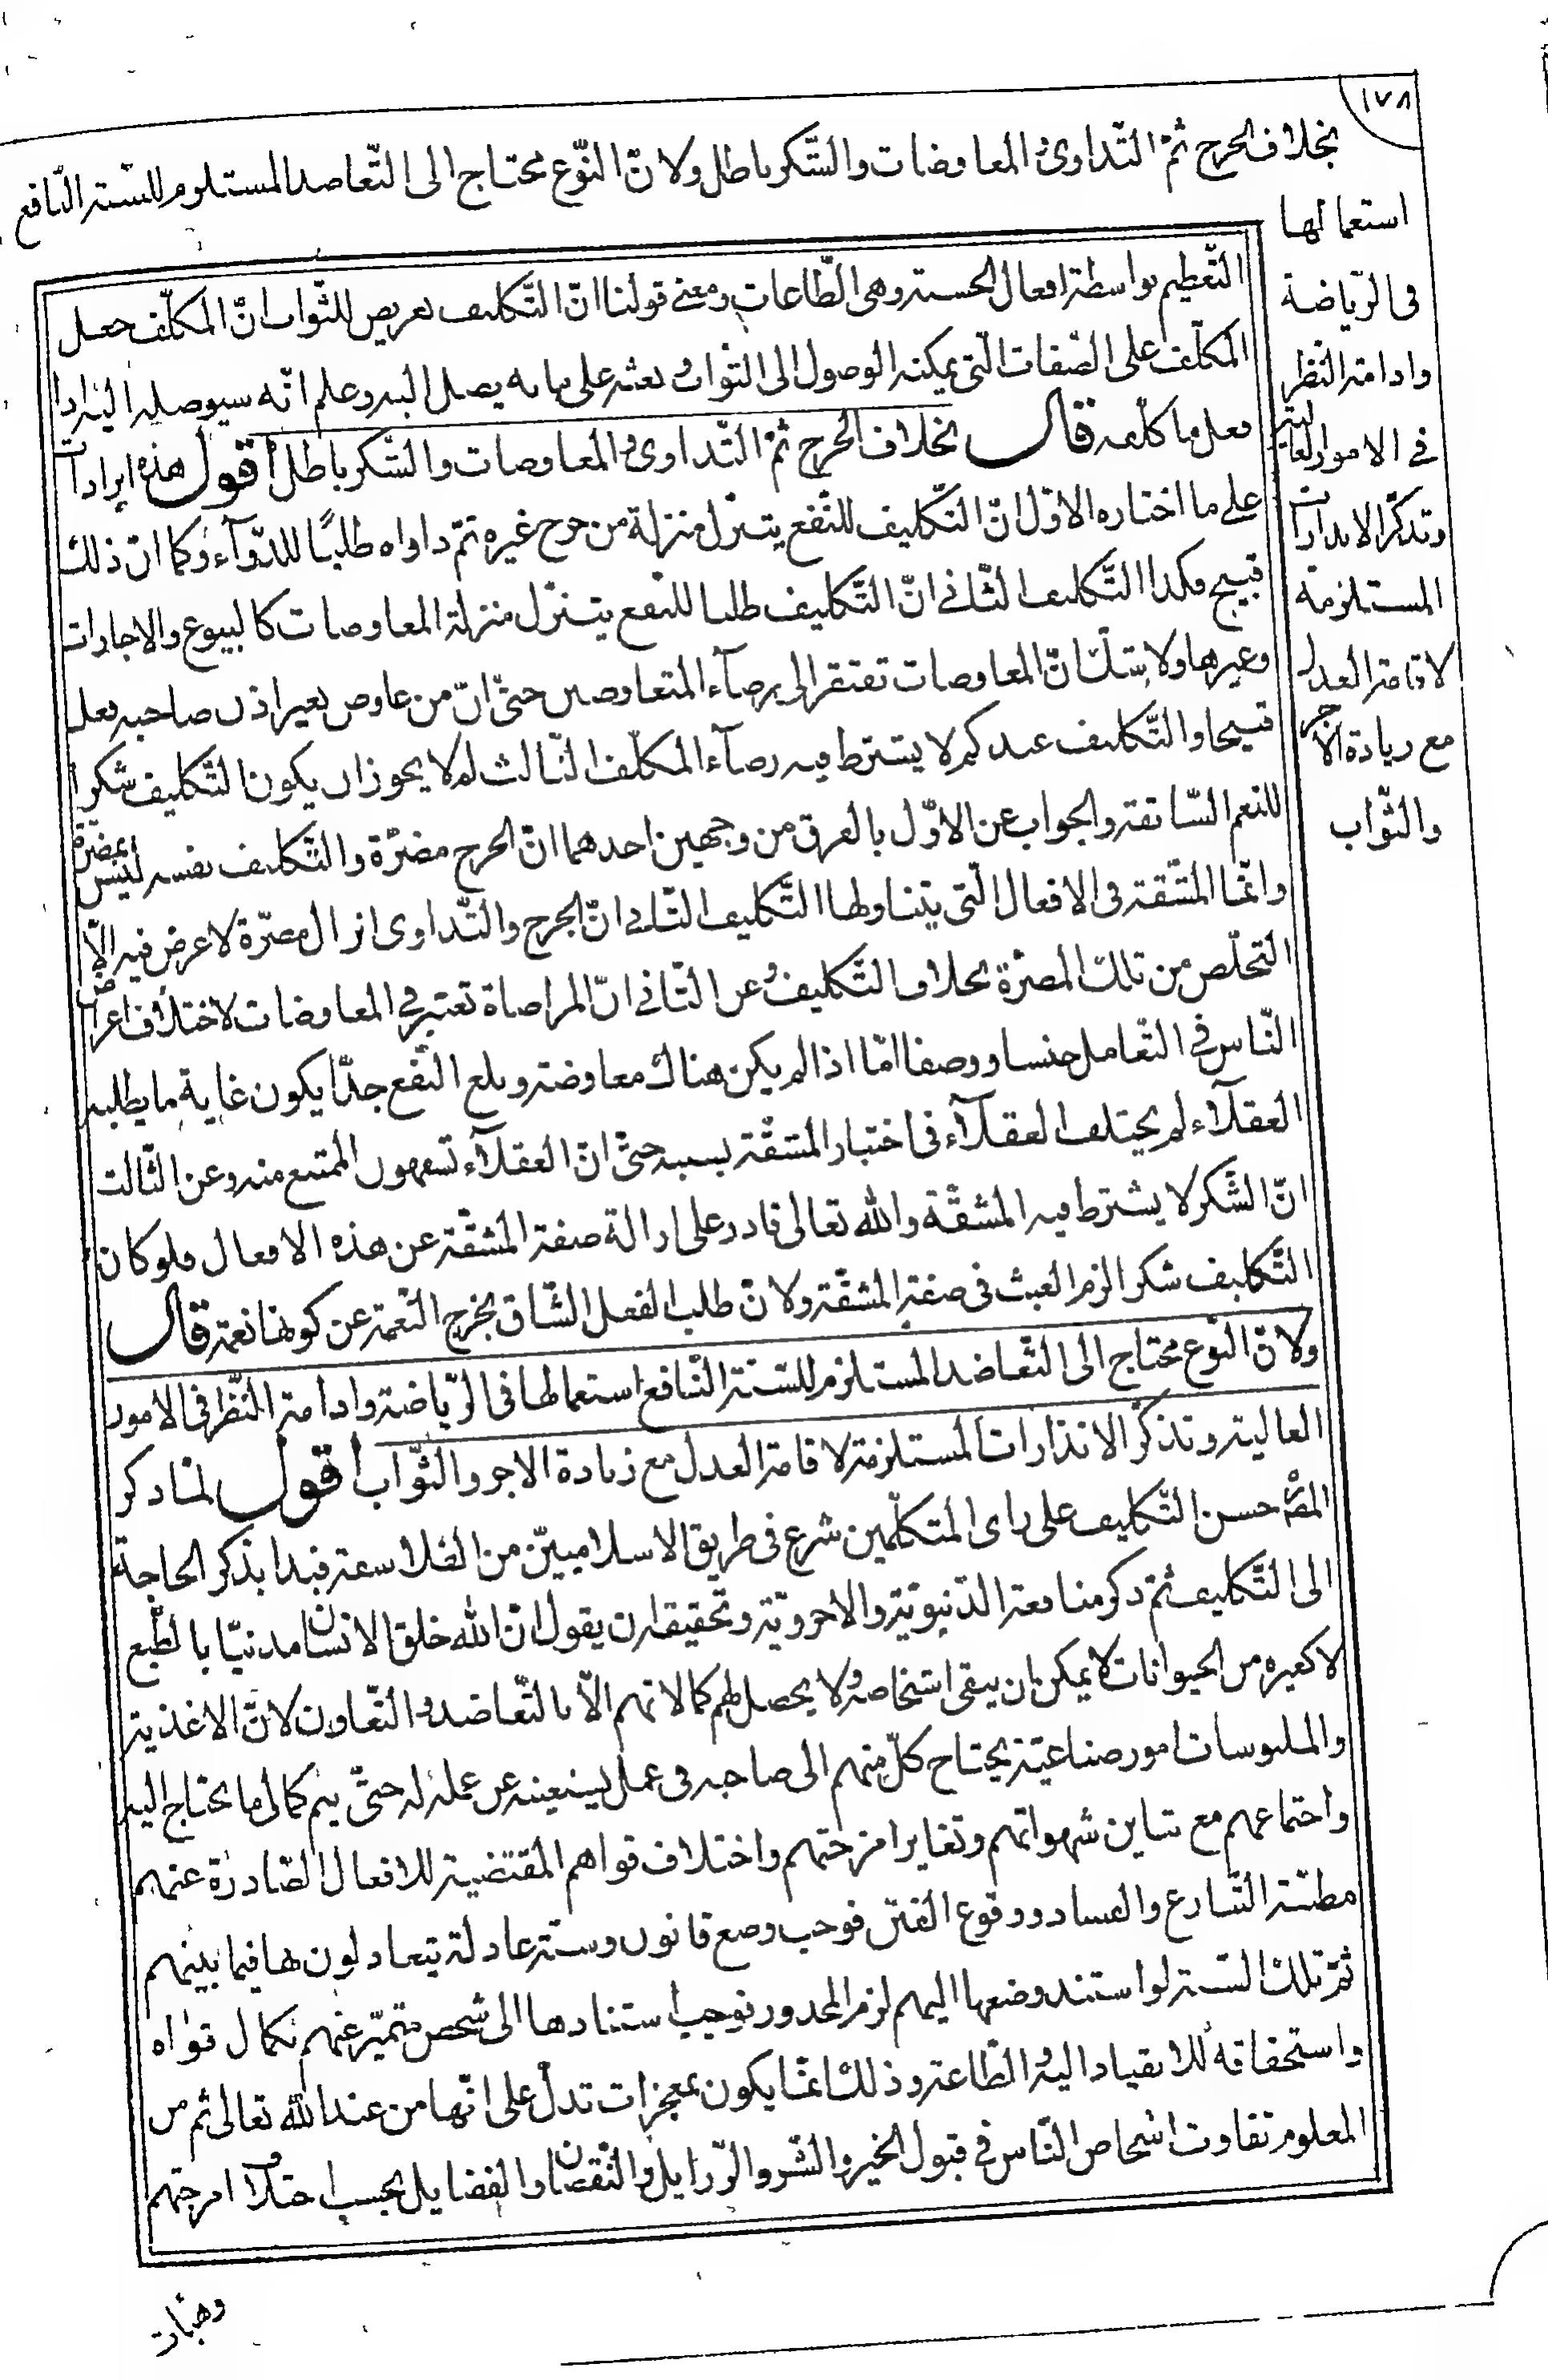 ١٧٨
بخلاف الجرح ثمّ التّداوى والمعاوضات والشّكر باطل ولانّ النّوع محتاج الى التّعاضد المستلزم للسّنة النّافع
استعمالها
فى الرّياضة
وادامة النّظر
فى الامور العالية
وتذكّر الانذارات
المستلزمة
لاقامة العدل
مع زيادة الاجر
والثّواب
التّعظيم بواسطة افعال الحسنة وهى الطّاعات ومعنى قولنا انّ التّكليف تعريض للثّواب انّ المكلّف جعل
المكلّف على الصّفات الّتى يمكنه الوصول الى الثّواب وبعثه على ما به يصل اليه وعلم انّه سيوصله اليه اذا
فعل ما كلّفه قال بخلاف الجرح ثمّ التّداوى والمعاوضات والشّكر باطل اقول هذه ايرادات
على ما اختاره الاوّل انّ التّكليف للنّفع يتنزل منزلة من جرح غيره ثمّ داواه طلبًا للدّوآء وكما انّ ذلك
قبيح فكذا التّكليف الثّانى انّ التّكليف طلبا للنّفع يتنزّل منزلة المعاوضات كالبيوع والاجارات
وغيرها ولا شكّ انّ المعاوضات تفتقر الى رضآء المتعاوضين حتّى انّ من عاوض بغير اذن صاحبه فعل
قبيحا والتّكليف عندكم لا يشترط فيه رضآء المكلّف الثّالث لم لا يجوز ان يكون التّكليف شكرا
للنعم السّابقة والجواب عن الاوّل بالفرق من وجهين احدهما انّ الجرح مضرّة والتّكليف نفسه ليس بمضرّة
وانّما المشقّة فى الافعال الّتى يتناولها التّكليف الثّانى انّ الجرح والتّداوى انزال مضرّة لا غرض فيه الّا
التخلّص من تلك المضرّة بخلاف التّكليف وعن الثّانى انّ المراضاة تعتبر فى المعاوضات لاختلاف اغراض
النّاس فى التّعامل جنسا ووصفا امّا اذا لم يكن هناك معاوضة وبلغ النّفع جدّا يكون غاية ما يطلبه
العقلآء لم يختلف العقلآء فى اختيار المشقّة بسببه حتّى انّ العقلآء تسفّهون الممتنع منه وعن الثّالث
انّ الشّكر لا يشترط فيه المشقّة والله تعالى قادر على ازالة صفة المشقّة عن هذه الافعال فلو كان
التّكليف شكرا لزم العبث فى صفة المشقّة ولانّ طلب الفعل الشّاق يخرج النّعمة عن كونها نعمة قال
ولانّ النّوع محتاج الى التّعاضد المستلزم للسّنة النّافع استعمالها فى الرّياضة وادامة النّظر فى الامور
العالية وتذكّر الانذارات المستلزمة لاقامة العدل مع زيادة الاجر والثّواب اقول لمّا ذكر
المصّ حسن التّكليف على راى المتكلّمين شرع فى طريق الاسلاميّين من الفلاسفة فبدا بذكر الحاجة
الى التّكليف ثمّ ذكر منافعة الدّنيويّة والاخرويّة وتحقيقه ان يقول انّ الله خلق الانسان مدنيّا بالطّبع
لا كغيره من الحيوانات لا يمكن ان يبقى اشخاصه ولا يحصل لهم كمالاتهم الّا بالتّعاضد والتّعاون لانّ الاغذية
والملبوسات امور صناعيّة يحتاج كلّ منهم الى صاحبه فى عمل يستعينه عن عمله له حتّى يتم كمال ما يحتاج اليه
واجتماعهم مع تباين شهواتهم وتغاير امزجتهم واختلاف قواهم المقتضية للافعال الصّادرة عنهم
مظنّة التّنازع والفساد ووقوع الفتن فوجب وضع قانون وسنّة عادلة يتعادلون بها فيما بينهم
ثمّ تلك السّنة لو استند وضعها اليهم لزم المحذور فوجب استنادها الى شخص متميّز عنهم بكمال قواه
واستحقاقه للانقياد اليه والطّاعة وذلك انّما يكون بمعجزات تدلّ على انّها من عند الله تعالى ثم من
المعلوم تفاوت اشخاص النّاس فى قبول الخير والشّر والرّزايل والنّقصان والفضايل بحسب اختلاف امزجتهم
وهيئات